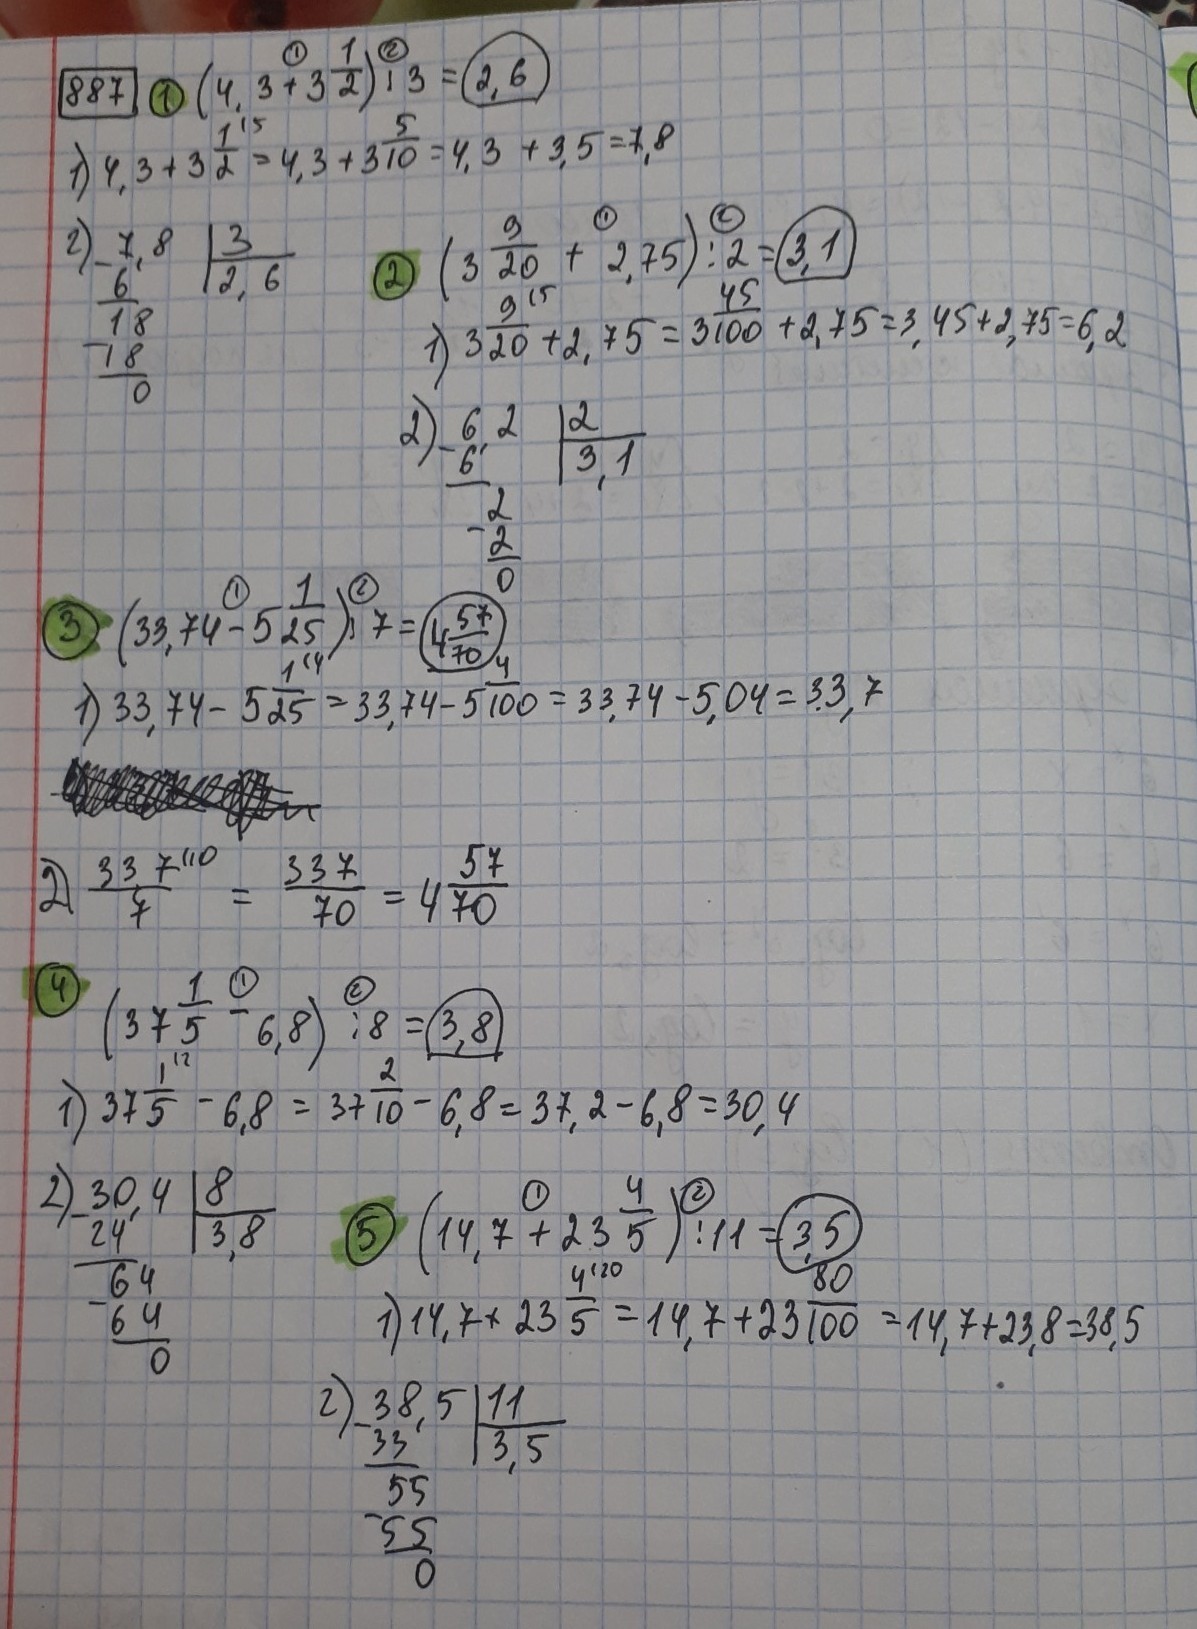 887 ① (4,3 + 3 1/2) : 3 = 2,6
① ②
1) 4,3 + 3 1/2 ⁽⁵ = 4,3 + 3 5/10 = 4,3 + 3,5 = 7,8
2) 7,8 | 3
- 6 | 2,6
18
- 18
0
② (3 9/20 + 2,75) : 2 = 3,1
① ②
1) 3 9/20 ⁽⁵ + 2,75 = 3 45/100 + 2,75 = 3,45 + 2,75 = 6,2
2) 6,2 | 2
- 6 | 3,1
2
- 2
0
③ (33,74 - 5 1/25) : 7 = 4 57/70
① ②
1) 33,74 - 5 1/25 ⁽⁴ = 33,74 - 5 4/100 = 33,74 - 5,04 = 33,7
2) 33,7/7 ⁽¹⁰ = 337/70 = 4 57/70
④ (37 1/5 - 6,8) : 8 = 3,8
① ②
1) 37 1/5 ⁽² - 6,8 = 37 2/10 - 6,8 = 37,2 - 6,8 = 30,4
2) 30,4 | 8
- 24 | 3,8
64
- 64
0
⑤ (14,7 + 23 4/5) : 11 = 3,5
① ②
1) 14,7 + 23 4/5 ⁽²⁰ = 14,7 + 23 80/100 = 14,7 + 23,8 = 38,5
2) 38,5 | 11
- 33 | 3,5
55
- 55
0